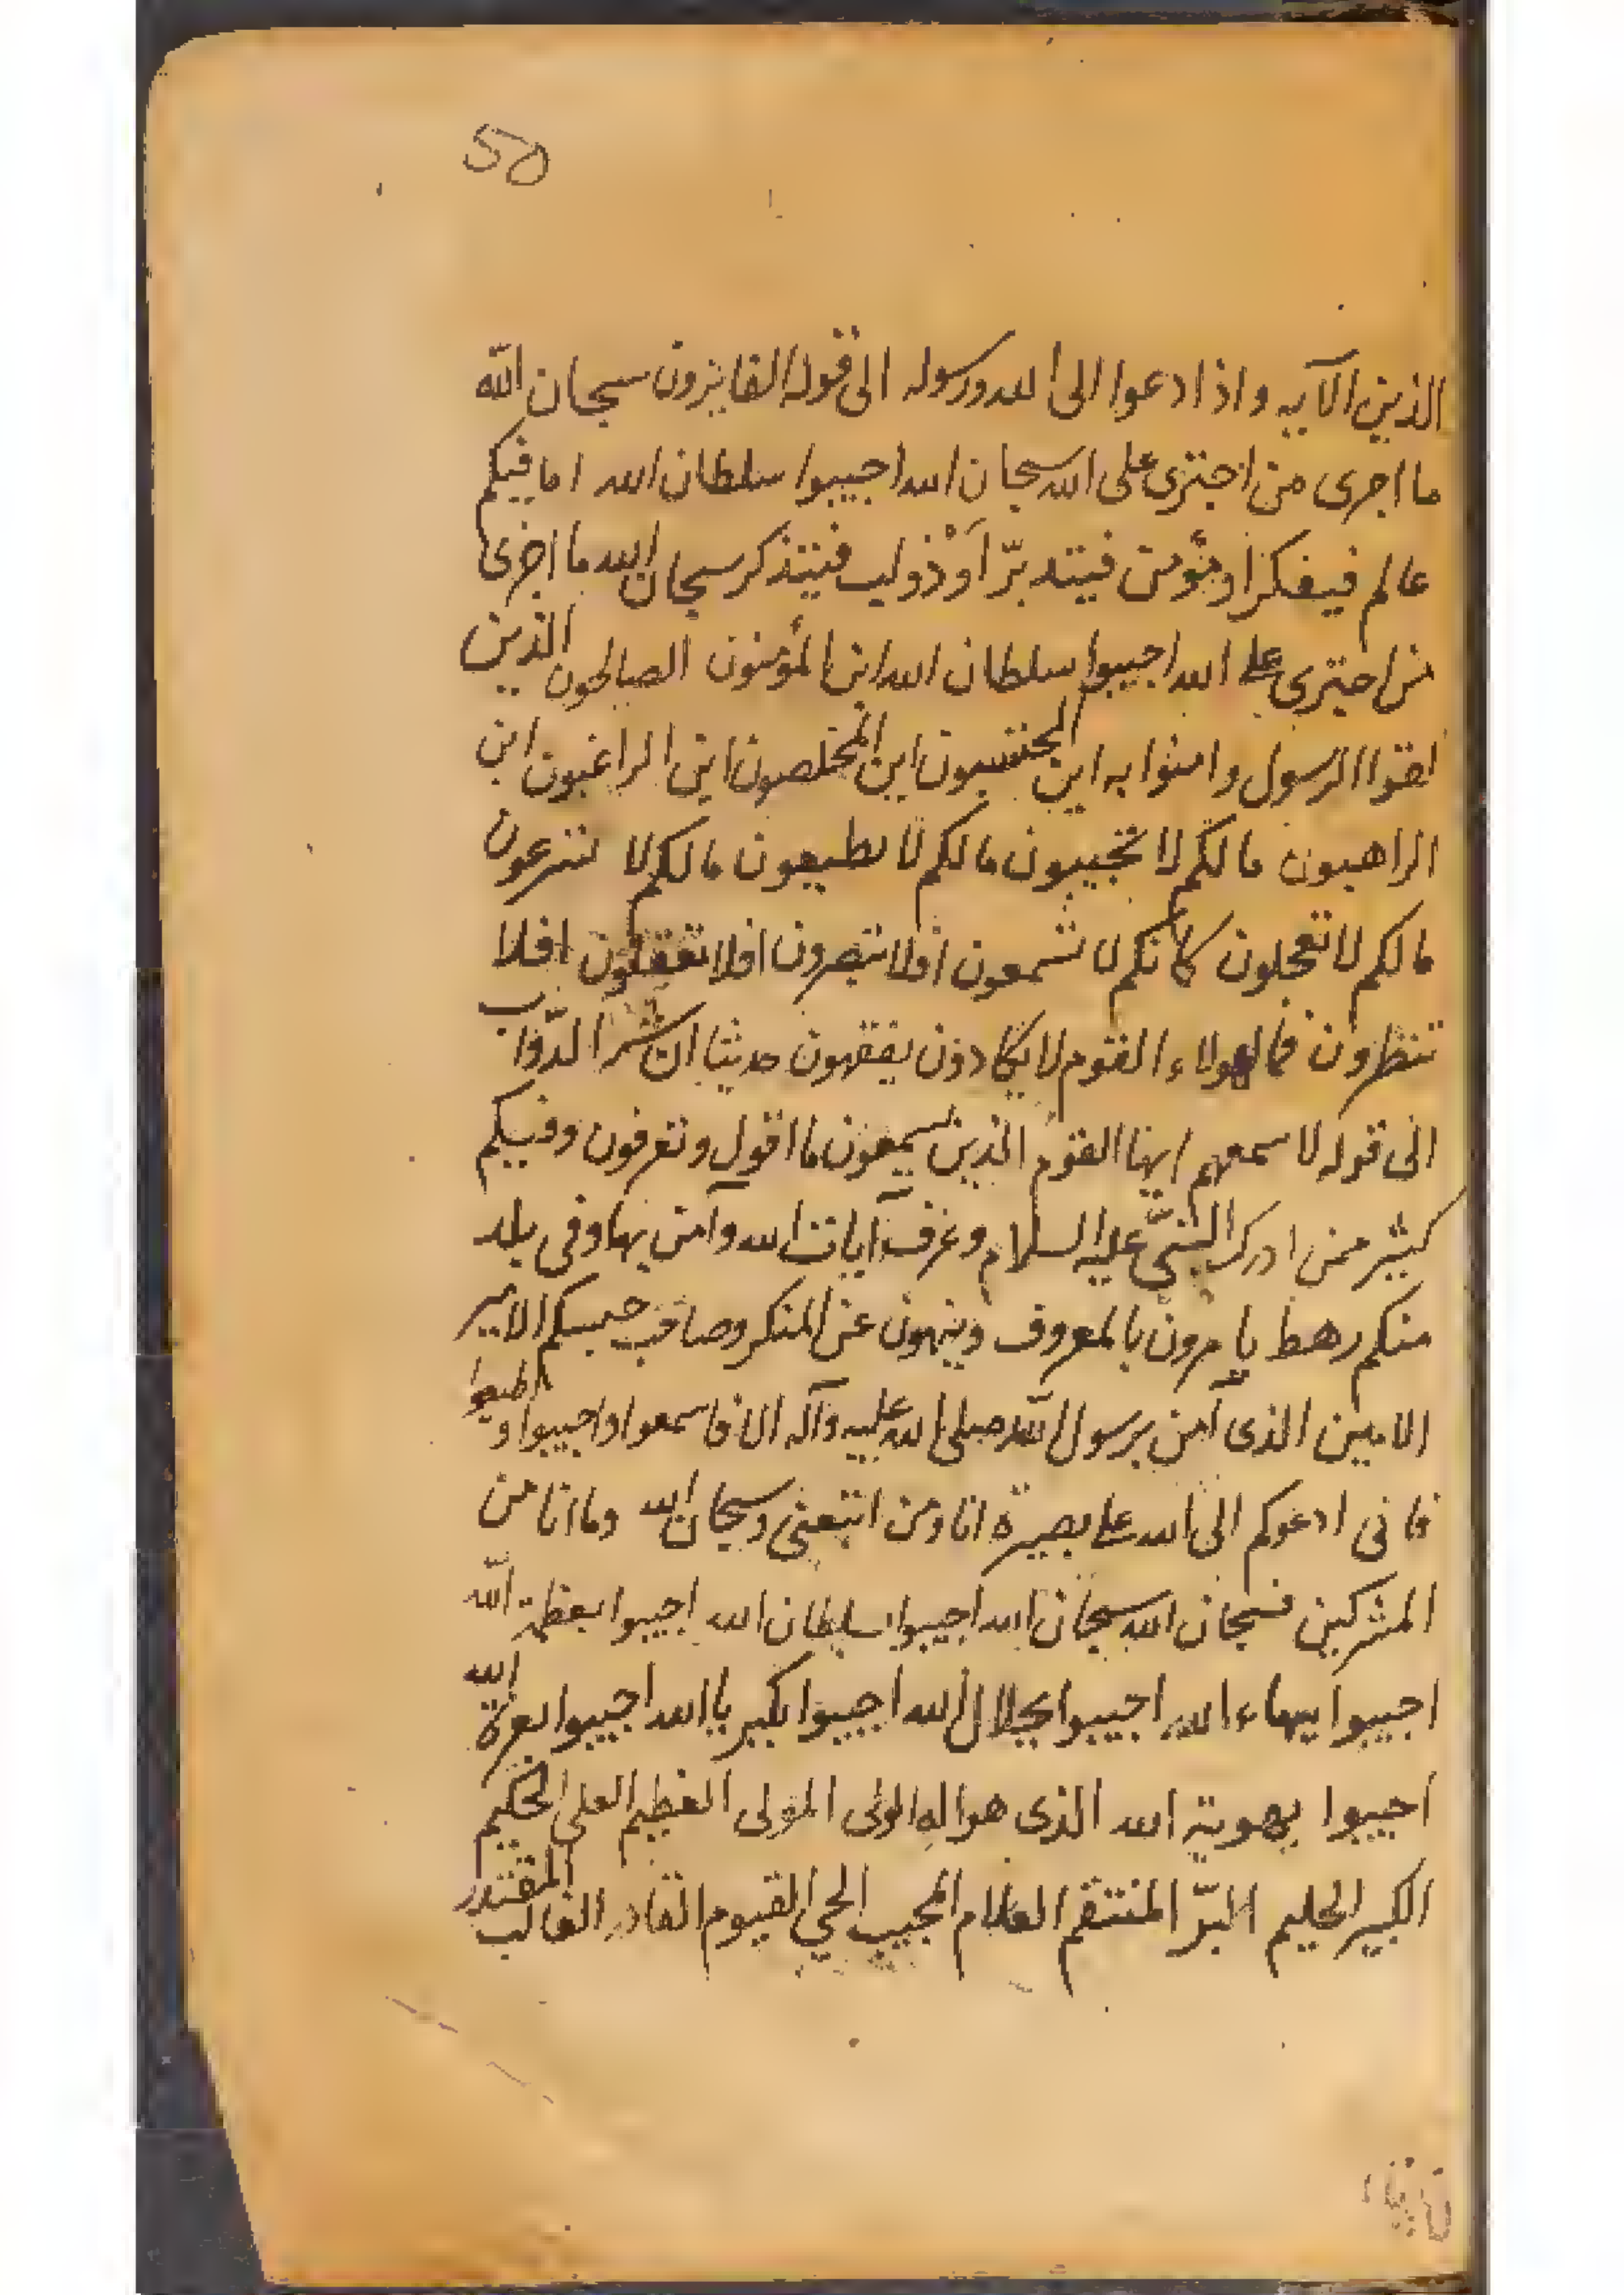 50
الذين الآيه واذا دعوا الى الله ورسوله الى قوله الفايزون سبحان الله
ما اجرى من اجترى على الله سبحان الله اجيبوا سلطان الله اما فيكم
عالم فيفكر او مؤمن فيتدبّر أو ذو لب فيتذكر سبحان الله ما اجرى
من اجترى على الله اجيبوا سلطان الله اين المؤمنون الصالحون الذين
الرسول وامنوا به اين اين المخلصون اين الراغبون اين
الراهبون مالكم لا تجيبون مالكم لا تطيعون مالكم لا تنزعون
مالكم لا تعجلون كانكم لا تسمعون افلا تبصرون افلا تعقلون افلا
تنظرون فما لهولاء القوم لا يكادون يفقهون حديثا ان شر الدّواب
الى قوله لاسمعهم ايها القوم الذين يسمعون ما اقول وتعرفون وفيكم
كثير ممن ادرك النبيّ عليه السلام وعرف آيات الله وآمن بها وفي بلد
منكم رهط يامرون بالمعروف وينهون عن المنكر وصاحب الامير
الامين الذى آمن برسول الله صلى الله عليه وآله الا فاسمعوا واجيبوا واطيعوا
فانى ادعوكم الى الله على بصيرة انا ومن اتبعنى وسبحان الله وما انا من
المشركين فسبحان الله سبحان الله اجيبوا سلطان الله اجيبوا بعظمة الله
اجيبوا ببهاء الله اجيبوا بجلال الله اجيبوا بكبرياا الله اجيبوا بعزة الله
اجيبوا بهوية الله الذى هو اله الولى المولى العظيم العلى الحكيم
الكبير الحليم البرّ المنتقم العلام المجيب الحي القيوم القادر الغالب المقتدر